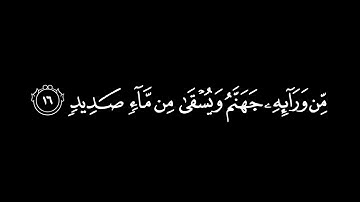 مِّن وَرَآئِهِۦ جَهَنَّمُ وَيُسْقَىٰ مِن مَّآءٍ صَدِيدٍ ١٦